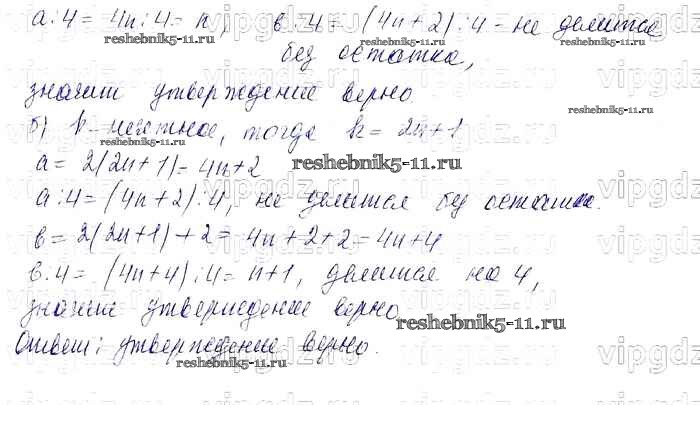 а:4 = 4n:4 = n, в:4 = (4n+2):4 - не делится
reshebnik5-11.ru reshebnik5-11.ru
без остатка,
значит утверждение верно
reshebnik5-11.ru
б) k - нечетное, тогда k = 2n+1
а = 2(2n+1) = 4n+2 reshebnik5-11.ru
а:4 = (4n+2):4, не делится без остатка.
в = 2(2n+1)+2 = 4n+2+2 = 4n+4
в:4 = (4n+4):4 = n+1, делится на 4,
значит утверждение верно
reshebnik5-11.ru
Ответ: утверждение верно.
reshebnik5-11.ru